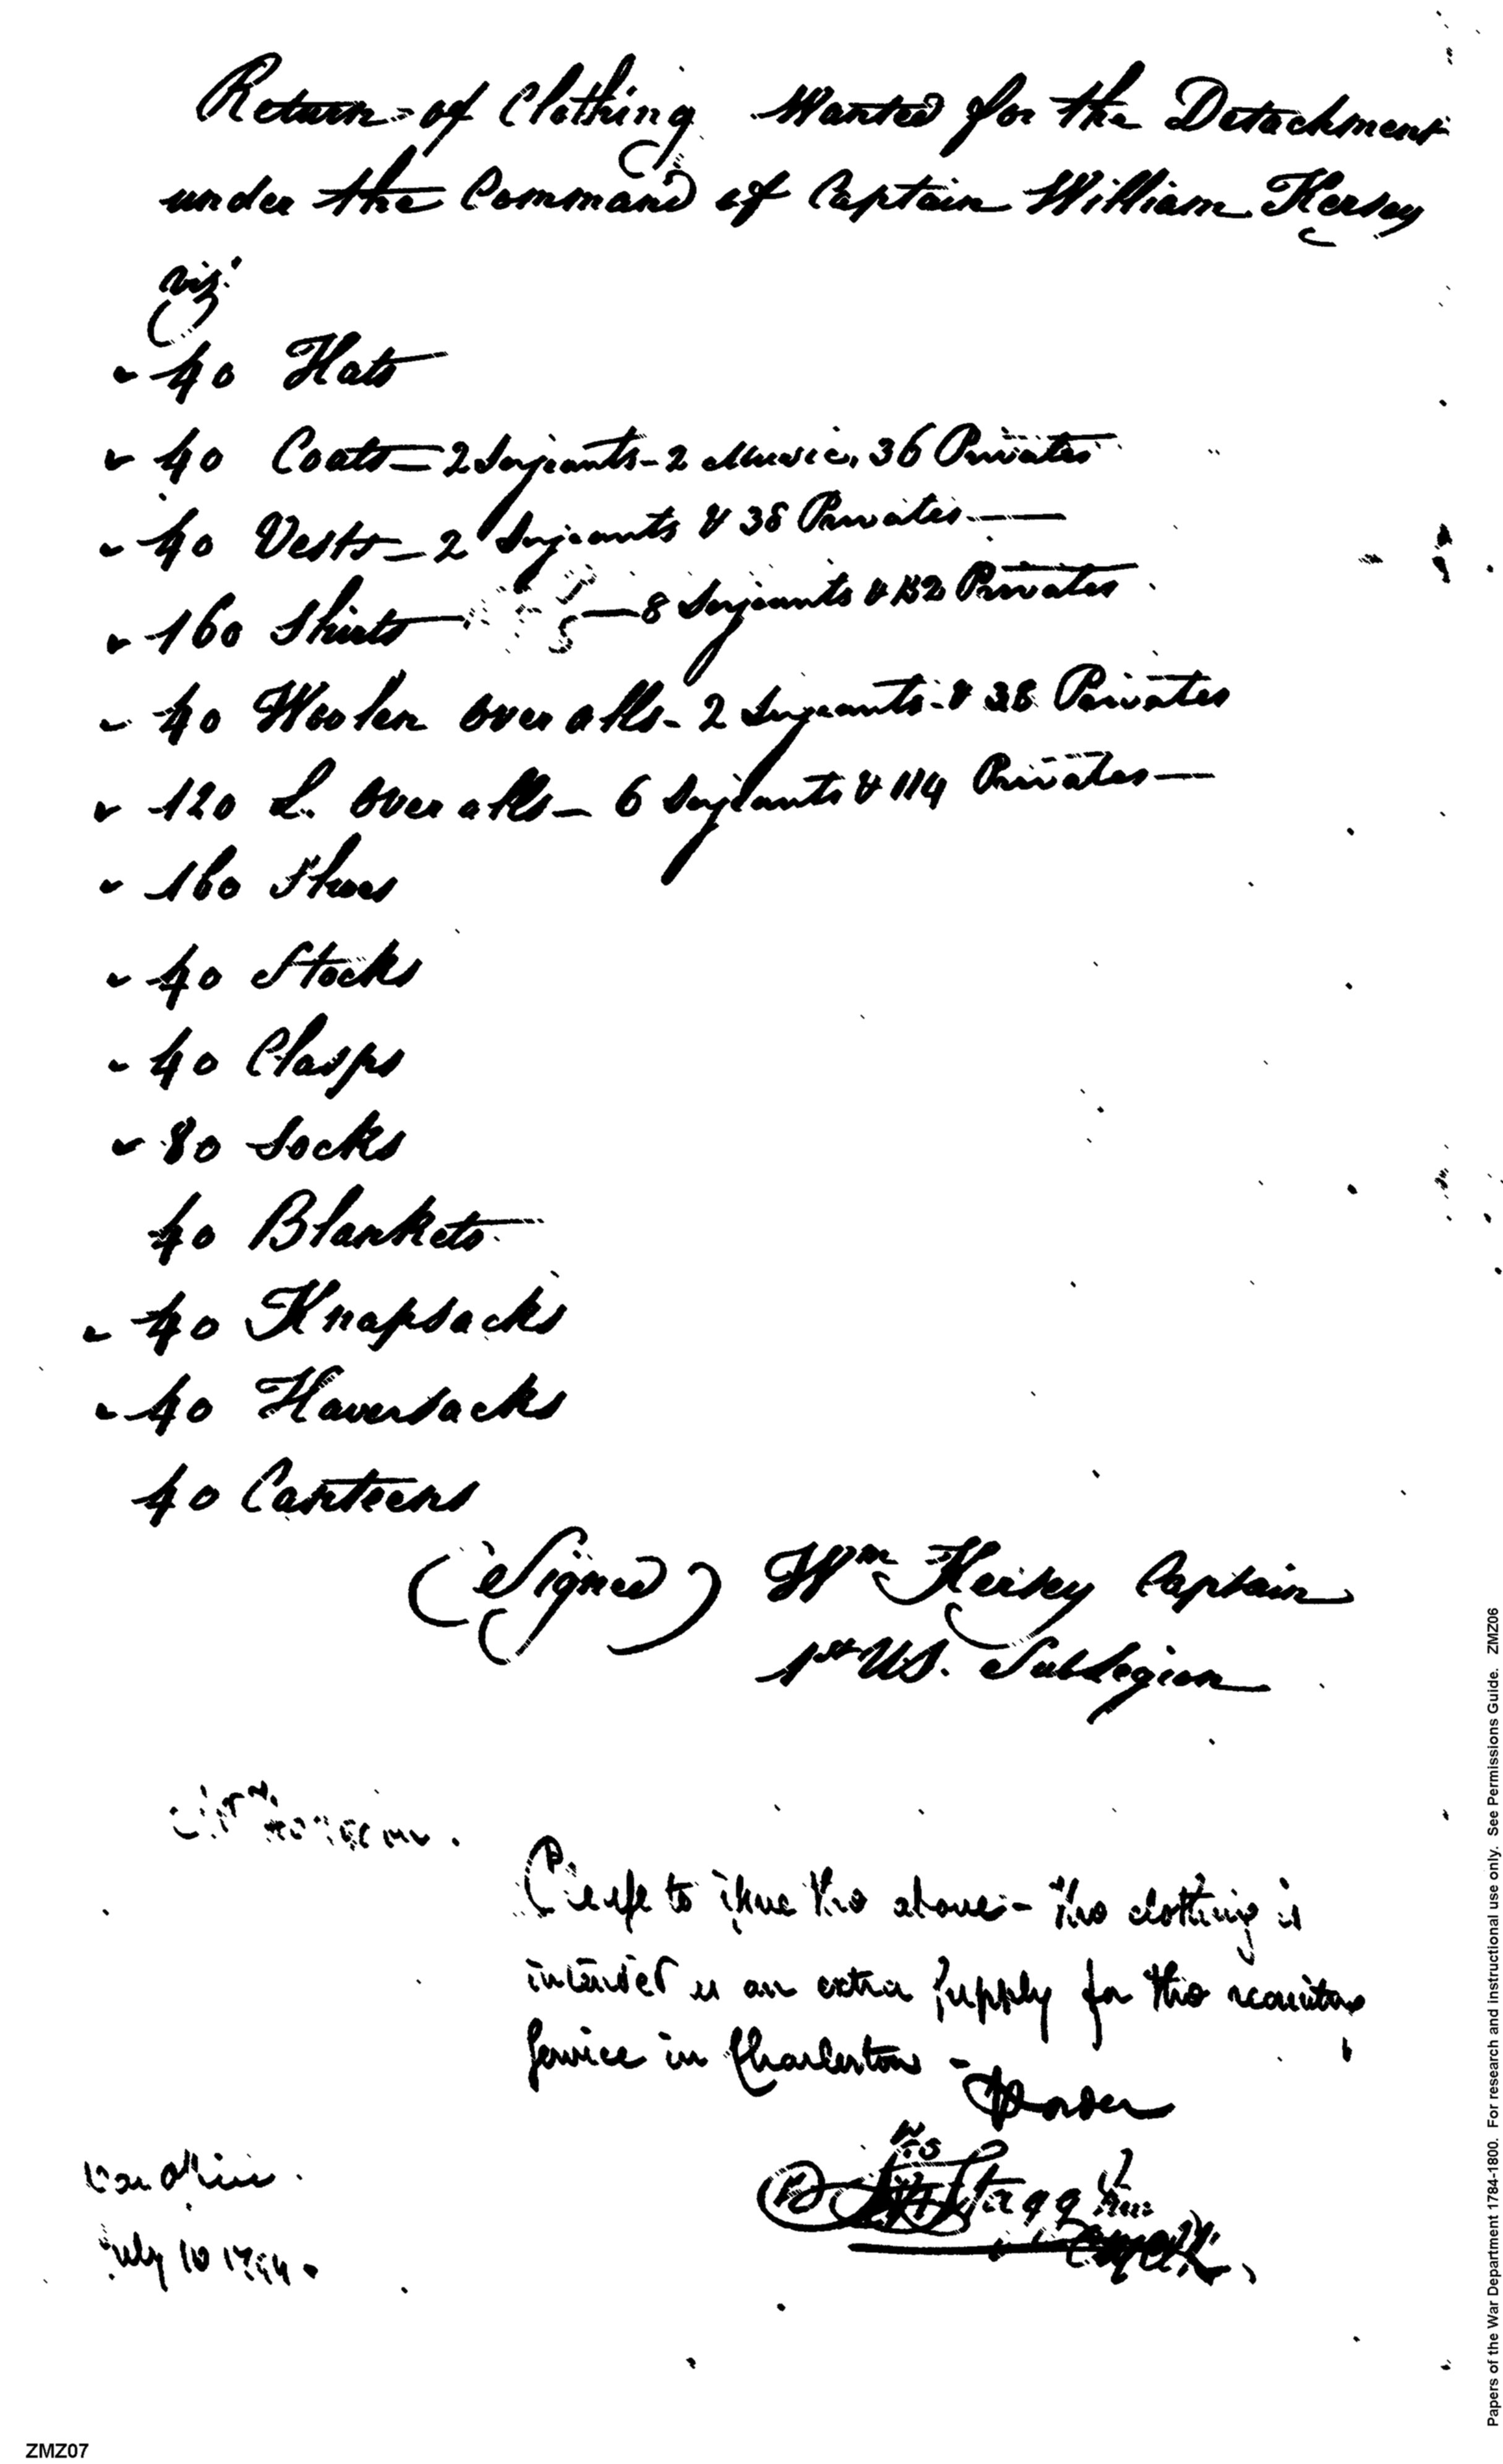 Return of Clothing Wanted for the Detachment
under the Command of Captain William Kersey
viz.
40 Hats
40 Coats = 2 Serjeants - 2 Music, 36 Privates
40 Vests - 2 Serjeants & 38 Privates
160 Shirts - 8 Serjeants & 152 Privates
40 Woolen over alls - 2 Serjeants & 38 Privates
120 L. over alls - 6 Serjeants & 114 Privates
160 Shoes
40 Stocks
40 Clasps
80 Socks
40 Blankets
40 Knapsacks
40 Haversacks
40 Canteens
(Signed) Wm Kersey Captain
1st US. SubLegion
Please to issue the above - the clothing is
intended as an extra supply for the recruiting
service in Charleston -
H Knox
Jno Stagg Jr
War Office.
July 10 1794.
Papers of the War Department 1784-1800. For research and instructional use only. See Permissions Guide. ZMZ06
ZMZ07